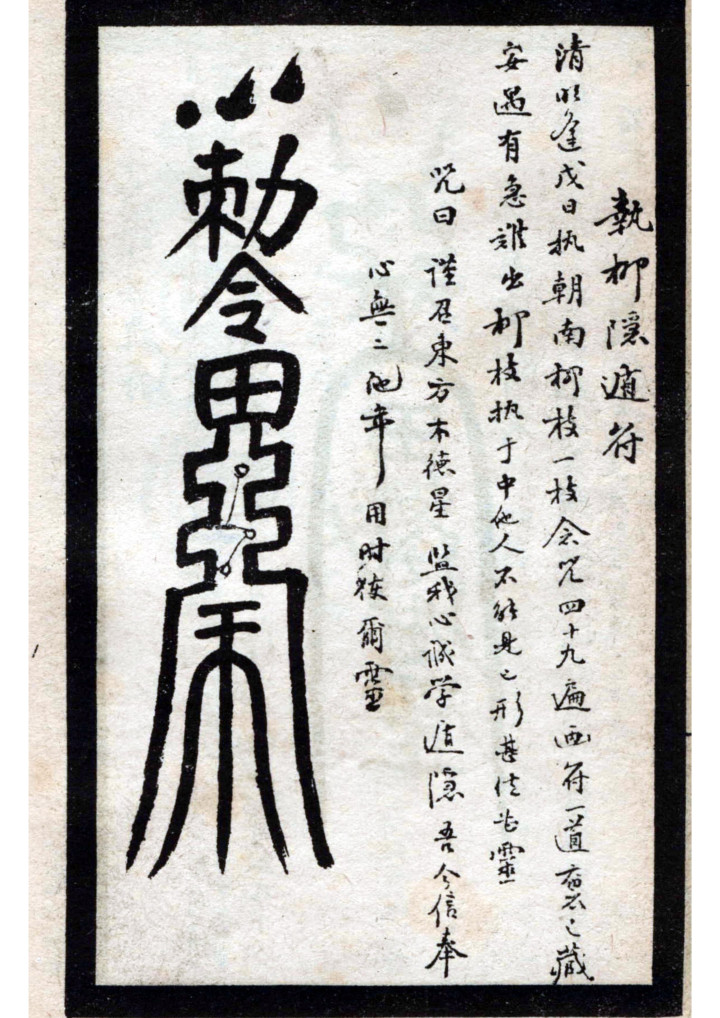 執柳隱遁符
清明逢戊日执朝南柳枝一枝念咒四十九遍画符一道之藏
安遇有急难出柳枝执于中他人不能见之形甚法灵
咒曰 谨召東方木德星 监我心诚学遁隱 吾今信奉
心無二 年 用时 爾靈
勅令